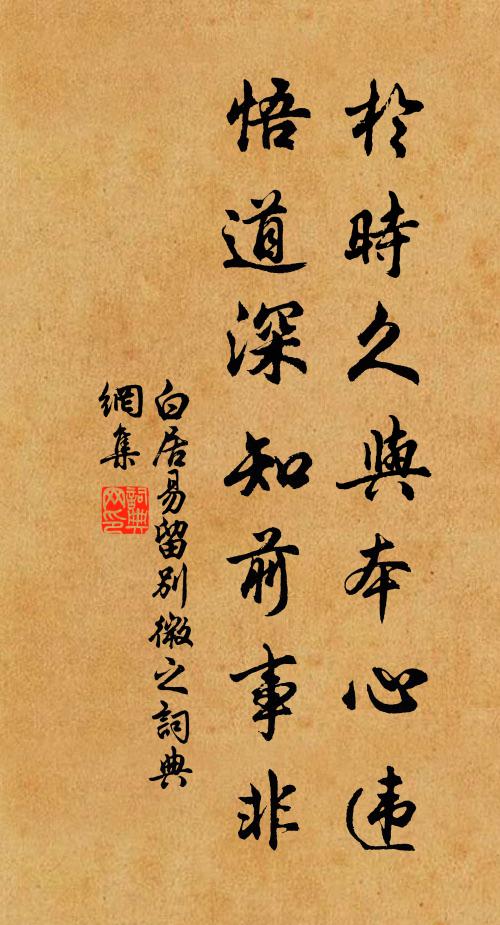 於時久與本心違
悟道深知前事非
白居易留別微之詞典
網集
詞典
网印